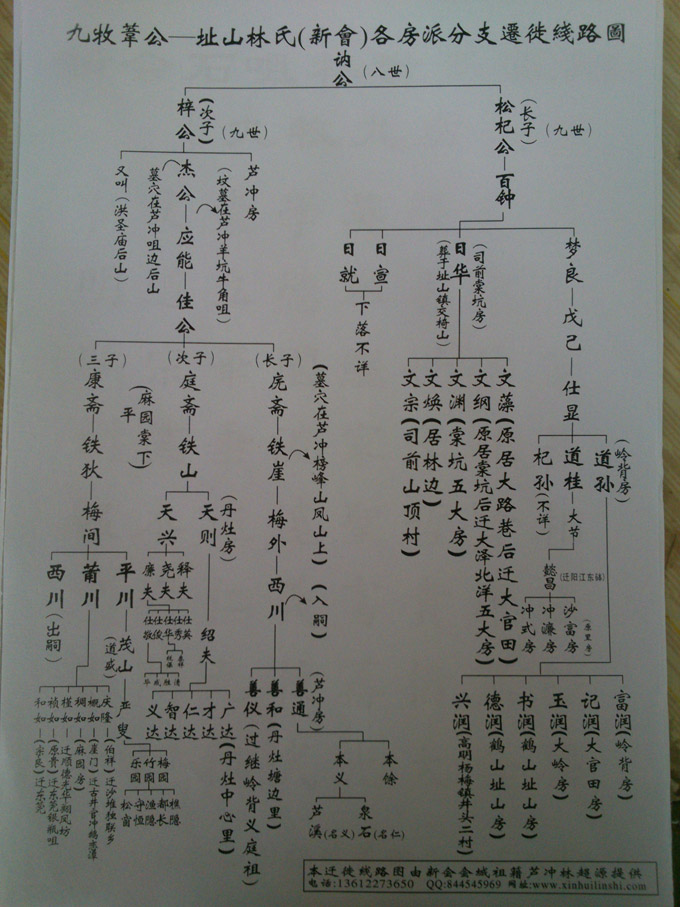 九牧葦公—址山林氏(新會)各房派分支遷徙线路圖
讷公(八世)
梓公(次子)(九世)
松杞公—百钟(长子)(九世)
又叫(洪圣庙后山)
墓穴在芦冲咀边后山
杰公—应能—佳公
(坟墓在芦冲羊坑牛角咀)
芦冲房
日就
日宣
下落不详
日华
(葬于址山镇交椅山)
(司前棠坑房)
梦良—戊己—仕显
(三子)
康斋—铁狄—梅间
(麻园棠下)
平
(次子)
庭斋—铁山
(长子)
庑斋—铁崖—梅外—西川
(墓穴在芦冲榜峰山凤山上)
(入嗣)
文宗(司前山顶村)
文焕(居林边)
文渊(棠坑五大房)
文纲(原居棠坑后迁大泽北洋五大房)
文藻(原居大路巷后迁大官田)
杞孙(不详)
道桂—大节
道孙
(岭背房)
懿昌
(迁阳江东镇)
冲式房
冲濂房
沙富房
(原里房)
天兴
天则
(丹灶房)
廉夫
尧夫
释夫
绍夫
西川(出嗣)
莆川
平川
茂山
(道盛)
严叟
义达
智达
仁达
才达
广达
(丹灶中心里)
善仪(过继岭背义庭祖)
善和(丹灶塘边里)
善通
(芦冲房)
本义
本馀
芦溪(名义)
泉石(名仁)
乐园
竹园
梅园
松窗
守恒
渔隐
都长
樵隐
兴润(高明杨梅镇井头二村)
德润(鹤山址山房)
书润(鹤山址山房)
玉润(大岭房)
记润(大官田房)
富润(岭背房)
本迁徙线路图由新会会城祖籍芦冲林超源提供
电话:13612273650 QQ:844545969 网址:www.xinhuilinshi.com